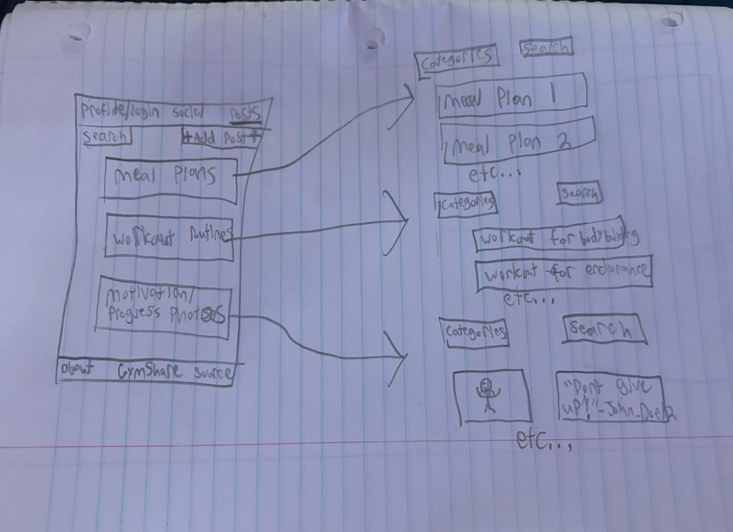 Profile/login social Posts
Search +Add Post+
Meal Plans
Workout routines
Motivation/
Progress Photos
About GymShare Source
Categories Search
Meal Plan 1
Meal Plan 2
etc...
Categories Search
Workout for bodybuilding
Workout for endurance
etc...
Categories Search
"Dont give
up!"-John_Doe
etc...